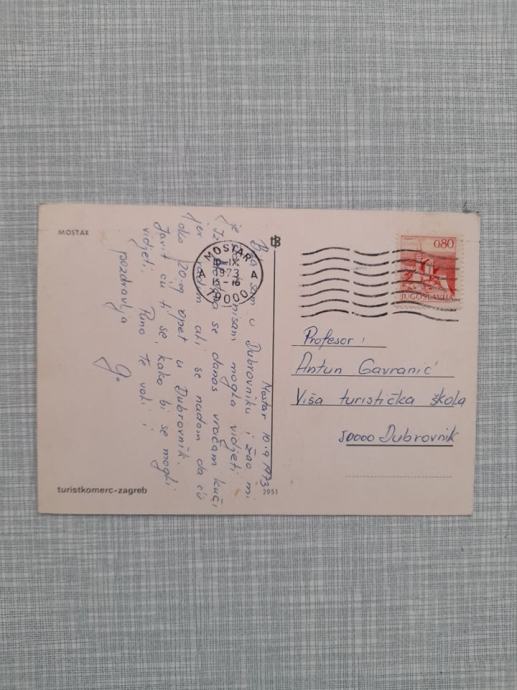 MOSTAR
Mostar 10.9.1973
sam u Dubrovniku i žao mi
je nisam mogla vidjeti
Iz se danas vraćam kući
jer radim ali se nadam da ću
oko 20og opet u Dubrovnik.
Javit ću ti se, kako bi se mogli
vidjeti. Puno Te voli i
pozdravlja
turistkomerc-zagreb
2951
MOSTAR
IX
1973
15-16
A A
0,80
JUGOSLAVIJA
Profesor:
Antun Gavranić
Viša turistička škola
50000 Dubrovnik